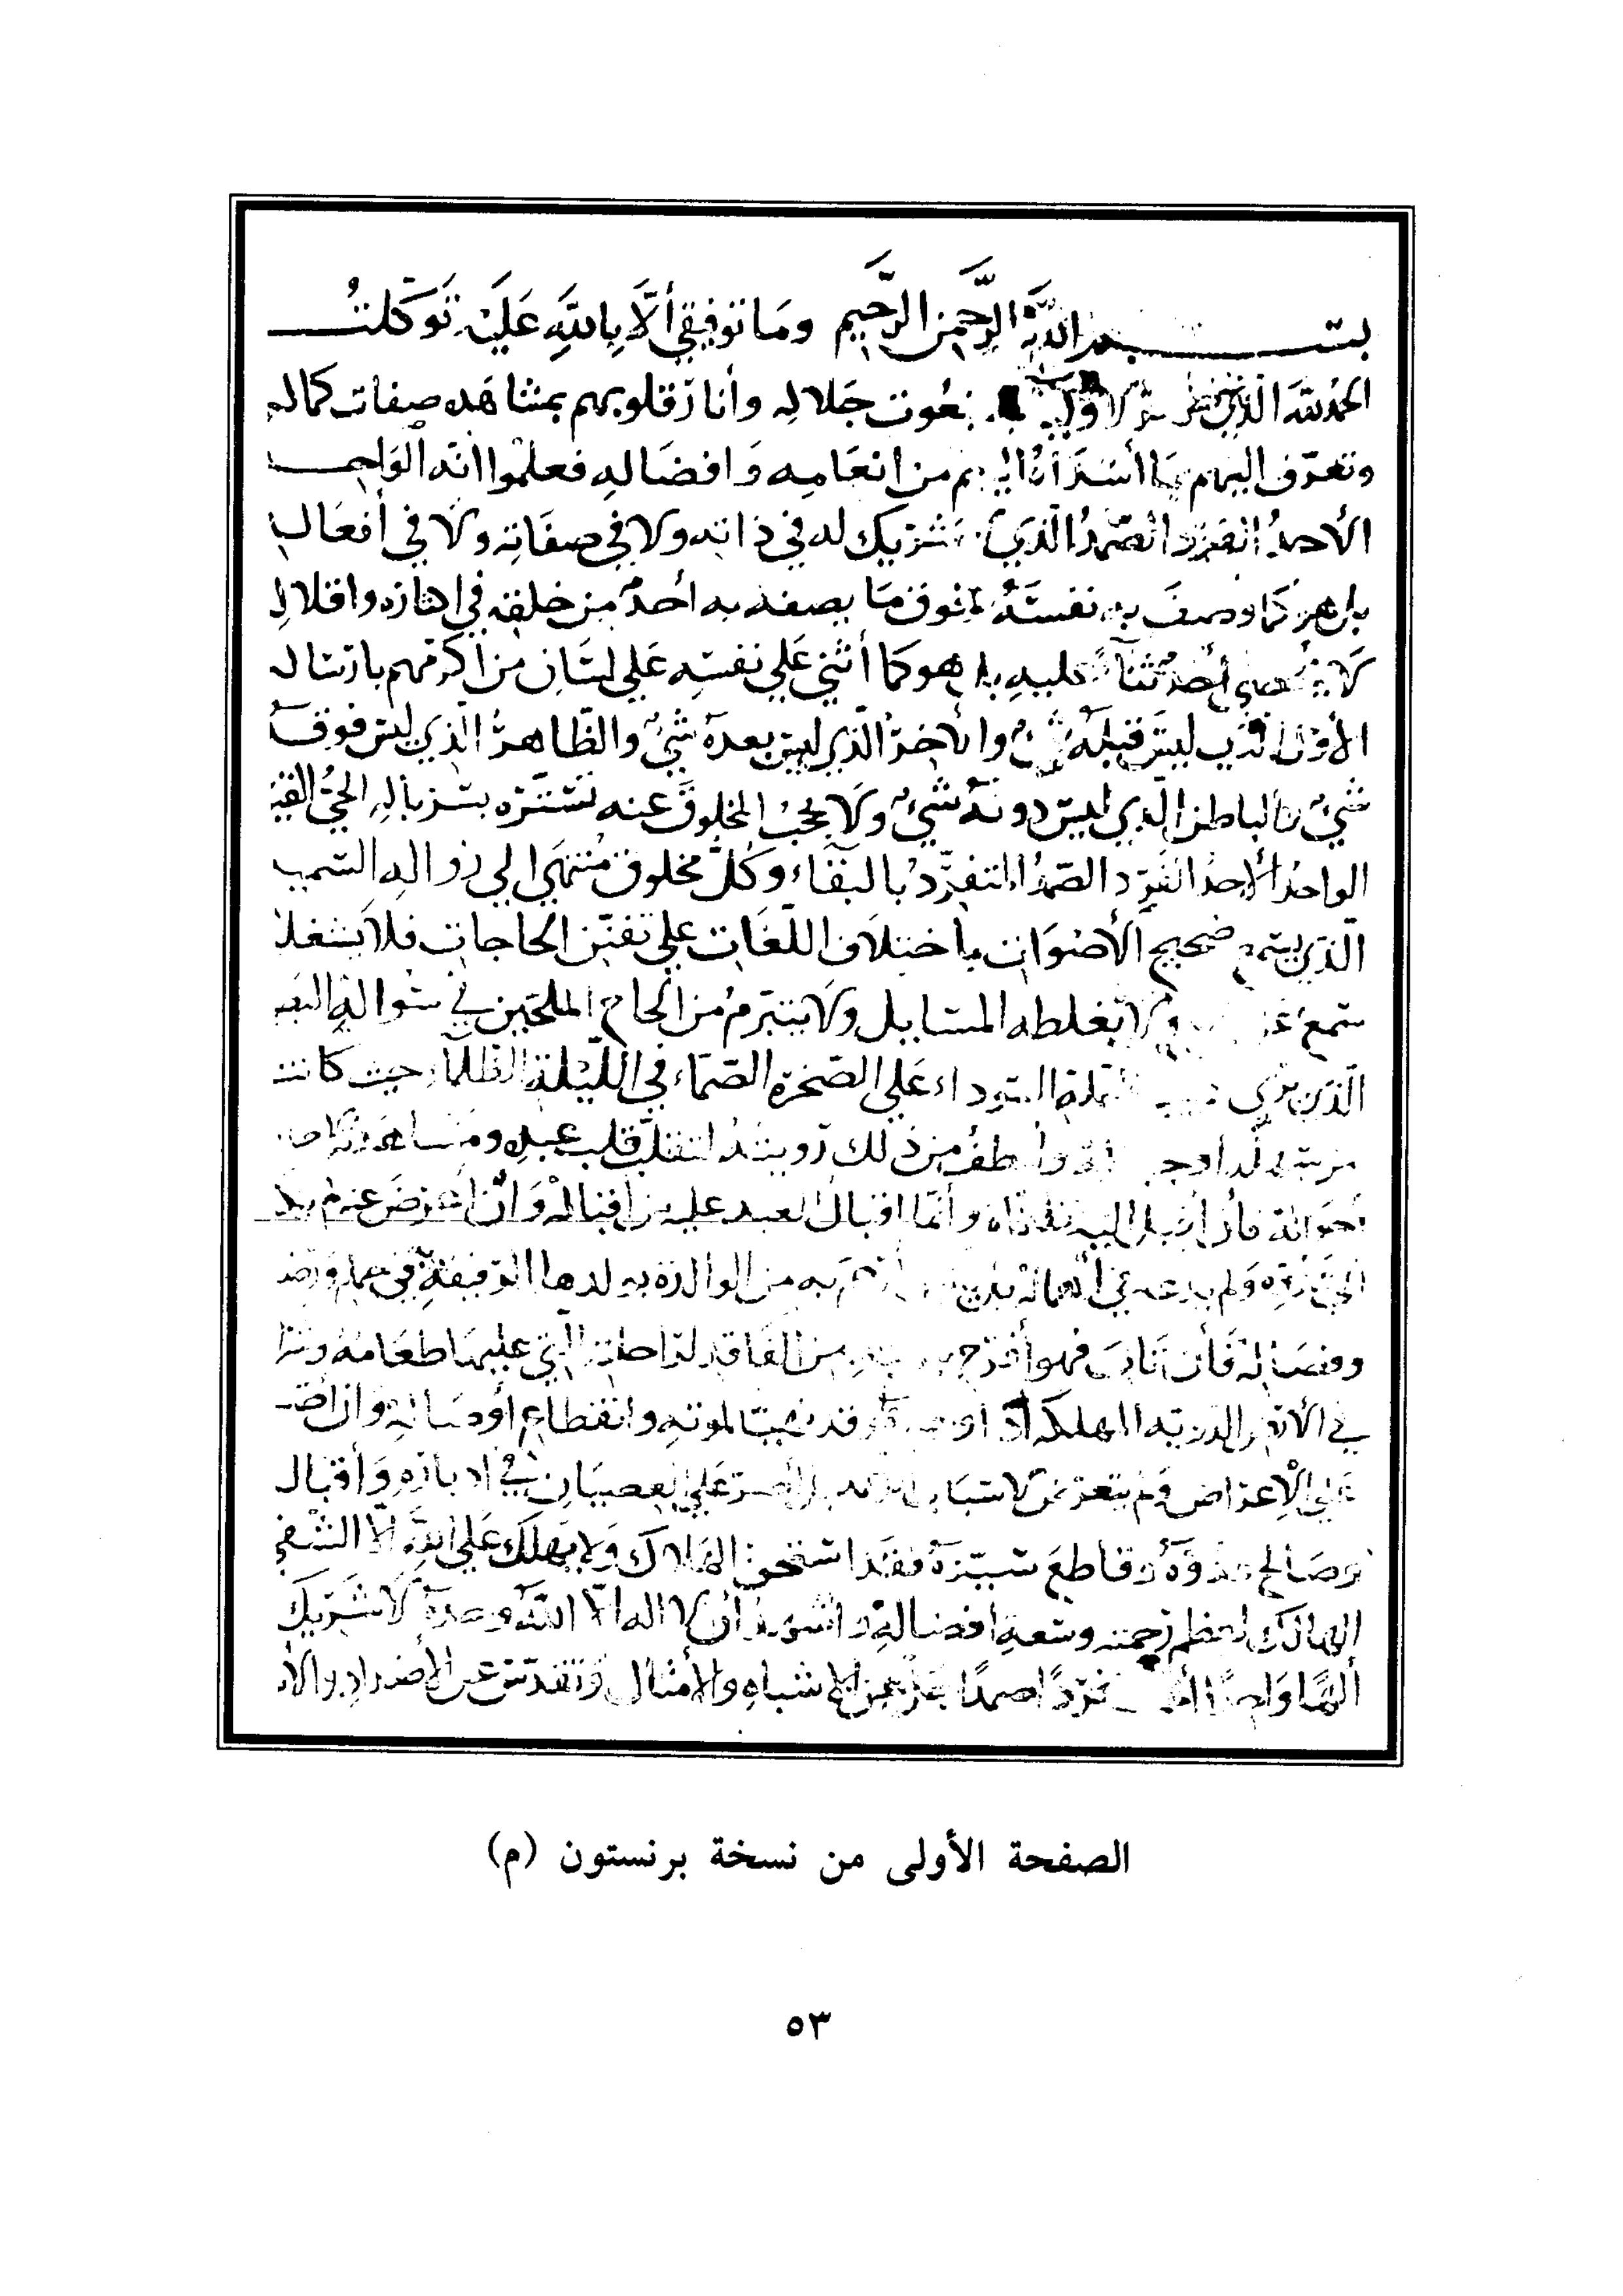 بسم الله الرحمن الرحيم وما توفيقي ألا بالله عليه توكلت
الحمد لله الذي نعوت جلاله وأنار قلوبهم بمشاهده صفات كماله
وتعرف اليهم بما أسداه اليهم من انعامه وافضاله فعلموا انه الواحد
الأحد الفرد الصمد الذي لا شريك له في ذاته ولا في صفاته ولا في أفعاله
بل هو كما وصف به نفسه وفوق ما يصفه به أحد من خلقه في اكثاره واقلاله
لا يحصي أحد ثناء عليه بل هو كما أثني علي نفسه علي لسان من أكرمهم بارساله
الأول الذي ليس قبله شيء والآخر الذي ليس بعده شيء والظاهر الذي ليس فوقه
شيء والباطن الذي ليس دونه شيء ولا يحجب المخلوق عنه تستره بسرباله الحي القيوم
الواحد الأحد الفرد الصمد المتفرد بالبقاء وكل مخلوق منتهي الي زواله السميع
الذي يسمع ضجيج الأصوات باختلاف اللغات علي تفنن الحاجات فلا يشغله
سمع عن ولا تغلطه المسايل ولا يتبرم من الحاح الملحين في سواله البصير
الذي يري دبيب النملة السوداء علي الصخرة الصماء في الليلة الظلماء حيث كانت
من سهله أو جباله وألطف من ذلك رويته لتقلب قلب عبده ومشاهدته لاختلاف
أحواله فأن أقبل اليه تلقاه وأنما اقبال العبد عليه من اقباله وأن أعرض عنه لم يكله
الي عدوه ولم يدعه في أهماله بل أرحم به من الوالدة بولدها الرفيقة في حمله ورضاعه
وفصاله فأن تاب فهو أفرح من الفاقد لراحلته التي عليها طعامه وشرابه
في الأرض الدوية المهلكة اذا وقد تهيا لموته وانقطاع أوصاله وان أصر
علي الأعراض ولم يتعرض لأسباب بل أصر علي العصيان في ادباره وأقباله
وصالح عدوه وقاطع سيده فقد استحق الهلاك ولا يهلك علي الله الا الشقي
الهالك لعظم رحمته وسعة افضاله وأشهد أن لا اله الا الله وحده لا شريك
ألها واحدا فردا صمدا جل عن الأشباه والأمثال وتقدس عن الأضداد والأ
الصفحة الأولى من نسخة برنستون (م)
٥٣